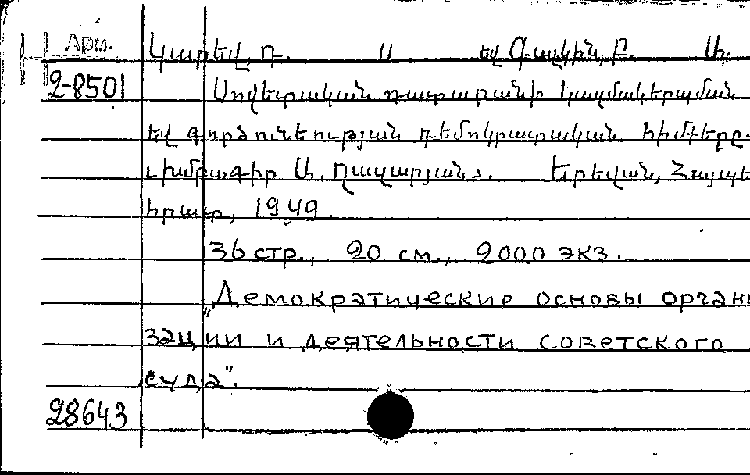 Арм.
Կարեվ, Դ. Ս եվ Գալկին, Բ. Ա.
2-8501 Սովետական դատարանի կազմակերպման
եվ գործունեության դեմոկրատական հիմքերը.
Խմբագիր Ա. Ղազարյանց. Երեվան, Հայպե
հրատ, 1949.
36 стр., 20 см., 2000 экз.
"Демократические основы органи
зации и деятельности советского
суда".
28643